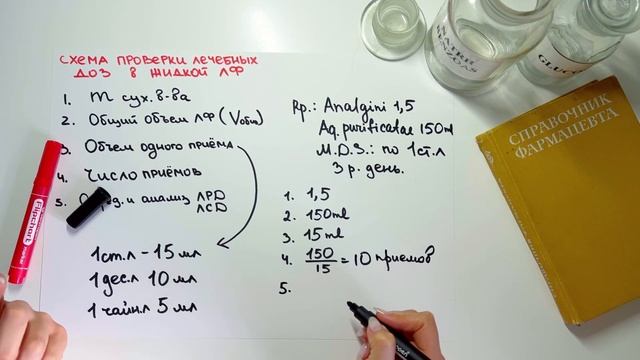 СХЕМА ПРОВЕРКИ ЛЕЧЕБНЫХ
ДОЗ В ЖИДКОЙ ЛФ
1. m сух. в-ва
2. Общий объем ЛФ (Vобщ)
3. Объем одного приёма
4. Число приёмов
5. и анализ ЛРД
ЛСД
1 ст.л - 15 мл
1 дес.л 10 мл
1 чайн.л 5 мл
Rp.: Analgini 1,5
Aq. purificatae 150ml
M.D.S.: по 1 ст.л
3 р. день.
1. 1,5
2. 150ml
3. 15ml
4. 150/15 = 10 приемов
5.
Flipchart
NATRII
BENZOAS
GLUCO
СПРАВОЧНИК
ФАРМАЦЕВТА